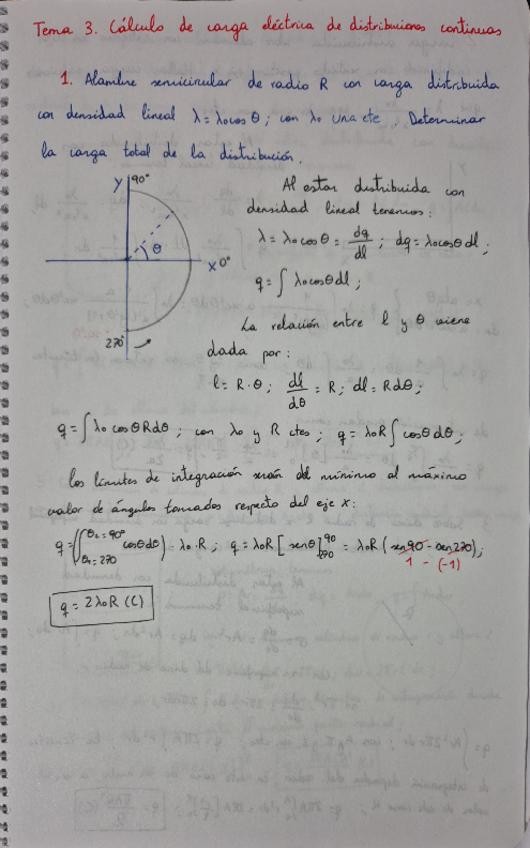 Tema 3. Cálculo de carga eléctrica de distribuciones continuas
1. Alambre semicircular de radio R con carga distribuida
con densidad lineal λ = λ₀cos θ ; con λ₀ una cte. Determinar
la carga total de la distribución.
Y 90°
θ
X 0°
270°
Al estar distribuida con
densidad lineal tenemos:
λ = λ₀ cos θ = dq/dl ; dq = λ₀cosθ dl ;
q = ∫ λ₀cosθ dl ;
La relación entre l y θ viene
dada por:
l = R · θ ; dl/dθ = R ; dl = R dθ ;
q = ∫ λ₀ cosθ R dθ ; con λ₀ y R ctes ; q = λ₀R ∫ cosθ dθ ;
los límites de integración serán del mínimo al máximo
valor de ángulos tomados respecto del eje x :
q = (∫ θ₂ = 90° θ₁ = 270 cosθ dθ) · λ₀ · R ; q = λ₀R [senθ]⁹⁰₂₇₀ = λ₀R (sen90 - sen270) ;
1 - (-1)
q = 2λ₀R (C)